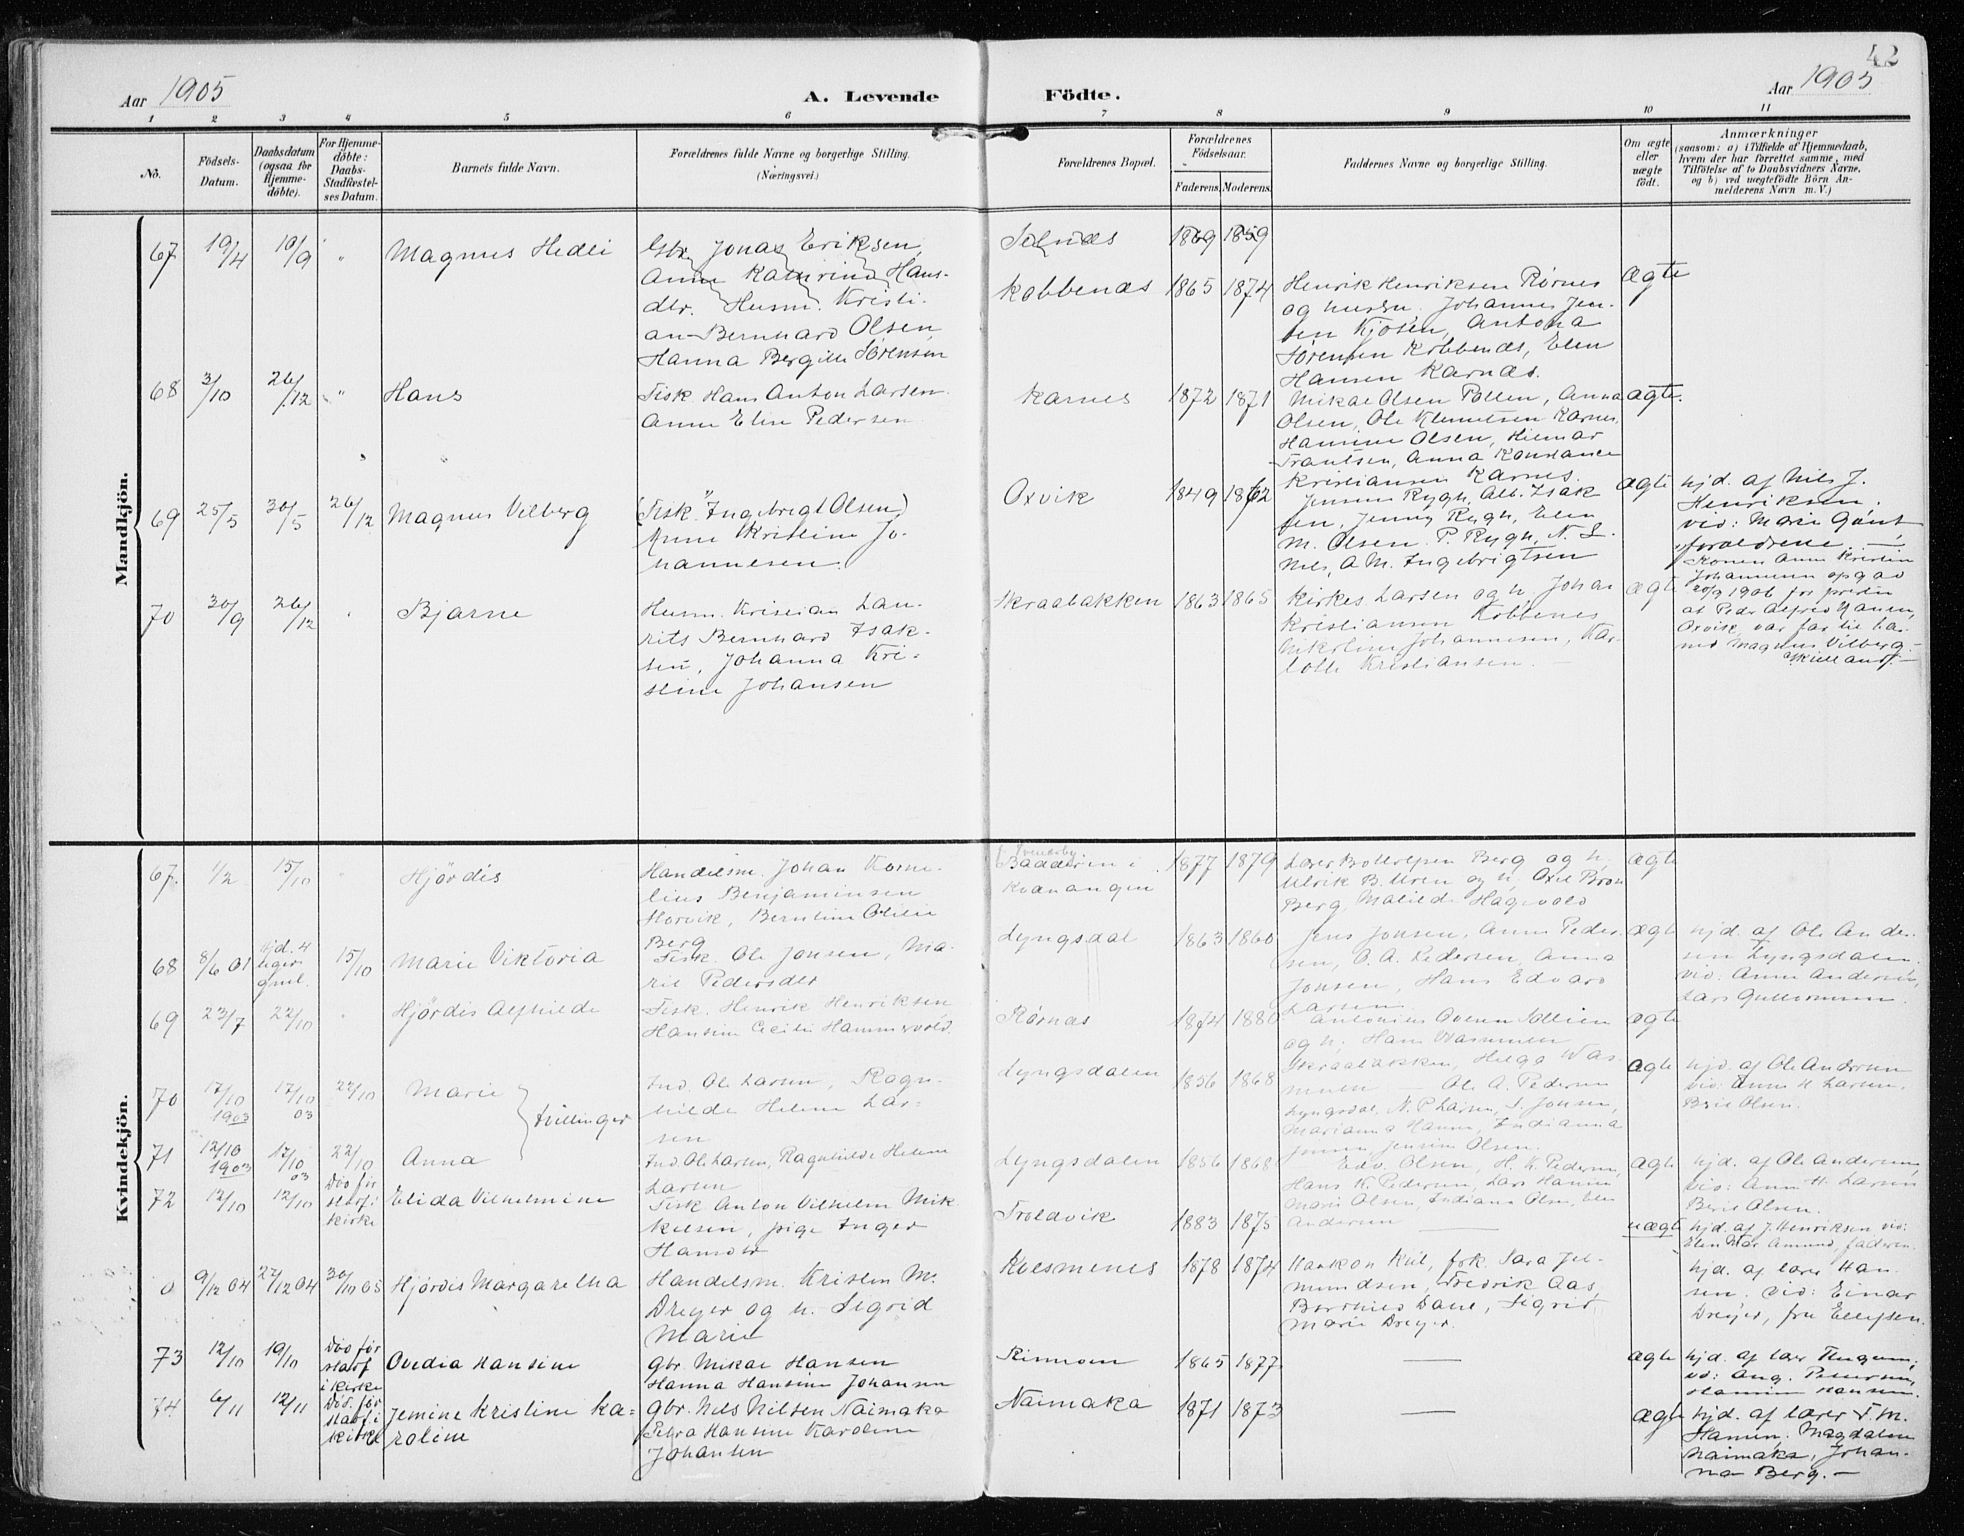 42
Aar 1905
A. Levende Födte.
Aar 1905
1 2 3 4 5 6 7 8 9 10 11
No.
Födsels-Datum.
Daabsdatum (ogsaa for Hjemme-döbte).
For Hjemme-döbte: Daabs-Stadfæstel-ses Datum.
Barnets fulde Navn.
Forældrenes fulde Navne og borgerlige Stilling.
(Næringsvei.)
Forældrenes Bopæl.
Forældrenes Födselsaar.
Faderens. Moderens.
Faddernes Navne og borgerlige Stilling.
Om ægte eller uægte födt.
Anmærkninger
(saasom: a) i Tilfælde af Hjemmedaab,
hvem der har forrettet samme, med
Tilföielse af to Daabsvidners Navne,
og b) ved uægtefödte Börn An-
melderens Navn m. V.)
Mandkjön.
67 19/4 10/9 " Magnus Hedli
Gbr. Jonas Eriksen,
Anne Katrine Hans-
dtr. Husm. Kristi-
an Bernhard Olsen,
Hanna Bergitte Sørensen
Solnæs 1869 1859
Kobbenæs 1865 1874
Henrik Henriksen Rørnes
og hustru. Johannes Jen-
sen Kjosen, Antona
Sørensen Kobbenæs, Elen
Hansen Karnæs.
ægte
68 3/10 26/12 " Hans
Fisk. Hans Anton Larsen
Anne Elen Pedersen
Karnes 1872 1871
Mikal Olsen Pollen, Anna
Olsen, Ole Klemetsen Karnes,
Hansine Olsen, Hilmar
Frantsen, Anna Konstance
Kristiansen Karnes.
ægte.
69 25/5 30/5 26/12 Magnus Vilberg
(Fisk. Ingebrigt Olsen)
Anne Kristine Jo-
hannesen.
Oxvik 1849 1862
Jensen Rygh, Alb. Isak
sen, Jenny Rygh, Elen
M. Olsen. P. Rygh, N. L.
Nils, A. M. Ingebrigtsen
ægte
hjd. af Nils J.
Henriksen.
vid: Marie Gønt
foreldrene. —
Konen Anne Kristin
Johannesen opgav
20/9 1906 for presten
at Peder Alfred Hansen,
Oxvik, var far til bar-
net Magnus Vilberg. —
Kielland. —
70 30/9 26/12 " Bjarne
Husm. Kristian Lau-
rits Bernhard Isak-
sen, Johanna Kri-
stine Johansen
Skraabakken 1863 1865
Kirkes. Larsen og h, Johan
Kristiansen Kobbenes
Nikoline Johannesen, Kar-
lotte Kristiansen. —
ægte
Kvindekjön.
67. 1/2 15/10 " Hjördis
Handelsm. Johan Korne-
lius Benjaminsen
Storvik, Berntine Otilie
Berg
Baddøren i
Kvænangen
1877 1879
Lærer Bottolfsen Berg og h,
Ulrik B. Uren og h, Oxel Bron
Berg, Matilde Hagevold
ægte
68 8/6 01 hjd. 4 uger gml. 15/10 Marie Viktoria
Fisk. Ole Jonsen, Ma-
rit Pedersdtr
Lyngsdal 1863 1860
Jens Jonsen, Anne Peder-
sen, O. A. Pedersen, Anna
Jonsen, Hans Edvard
Larsen
ægte
hjd. af Ole Ander-
sen Lyngsdalen.
vid: Anne Andersen,
Lars Gullormsen.
69 23/7 22/10 " Hjördis Alfhilde
Fisk. Henrik Henriksen
Hansine Cecilie Hammervold
Rörnæs 1874 1880
Antonius Ovenn Sollien
og h; Hans Rasmussen
Skraabakken, Helga Ras-
mussen
ægte
70 17/10 1903 17/10 03 22/10 Marie
} tvillinger
Ind. Ole Larsen, Ragn-
hilde Helene Lar-
sen
Lyngsdalen 1856 1868
Ole A. Pedersen
Lyngsdal, N. P. Larsen, S. Jonsen,
Marianna Hansen, Indianna
Jonsen, Jensine Olsen.
ægte
hjd. af Ole Andersen
vid: Anne H. Larsen.
Berit Olsen.
71 12/10 1903 17/10 03 22/10 Anna
Ind. Ole Larsen, Ragnhilde Helene
Larsen
Lyngsdalen 1856 1868
Edv. Olsen, H. K. Pedersen,
Hans K. Pedersen, Lars Hansen
Marie Olsen, Indiana Olsen, Elen
Andersen
ægte
hjd. af Ole Andersen,
vid: Anne H. Larsen
Berit Olsen.
72 12/10 12/10 Död før stadf. i kirke Elida Vilhelmine
Fisk Anton Vilhelm Mik-
kelsen, pige Inger
Hansdtr
Troldvik 1883 1875
—
uægte
hjd. af J. Henriksen vid:
Elen Mar. Amund, faderen.
0 9/12 04 27/12 04 30/10 05 Hjördis Margaretha
Handelsm. Kristen M.
Dreyer og h. Sigrid
Marie
Koesmenes 1878 1874
Haakon Kiil, frk. Sara Jel-
mundsen, Fredrik Aas,
Borrhild Dahl, Sigrid
Marie Dreyer.
hjd. af lærer Han-
sen. vid: Einar
Dreyer, fru Ellefsen.
73 12/10 19/10 Död før stadf. i kirke Ovedia Hansine
gbr. Mikal Hansen
Hanna Hansine Johansen
Rinnom 1865 1877
—
ægte
hjd. af lærer
vid: Aug. Petersen,
Hansine Hansen.
74 6/11 12/11 Död før stadf. i kirke Jemine Kristine Ka-
roline
gbr. Nils Nilsen Naimaka
Petra Hansine Karoline
Johansen
Naimaka 1871 1873
—
ægte
hjd. af lærer F. M.
Hansen. Magdalene
Naimaka, Johan-
na Berg. —